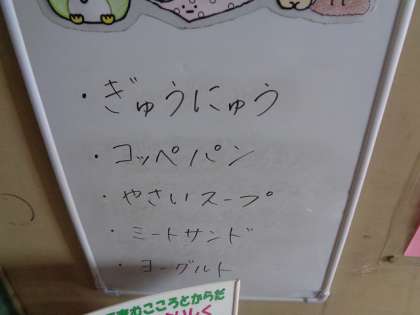 ・ぎゅうにゅう
・コッペパン
・やさいスープ
・ミートサンド
・ヨーグルト
こころとからだ